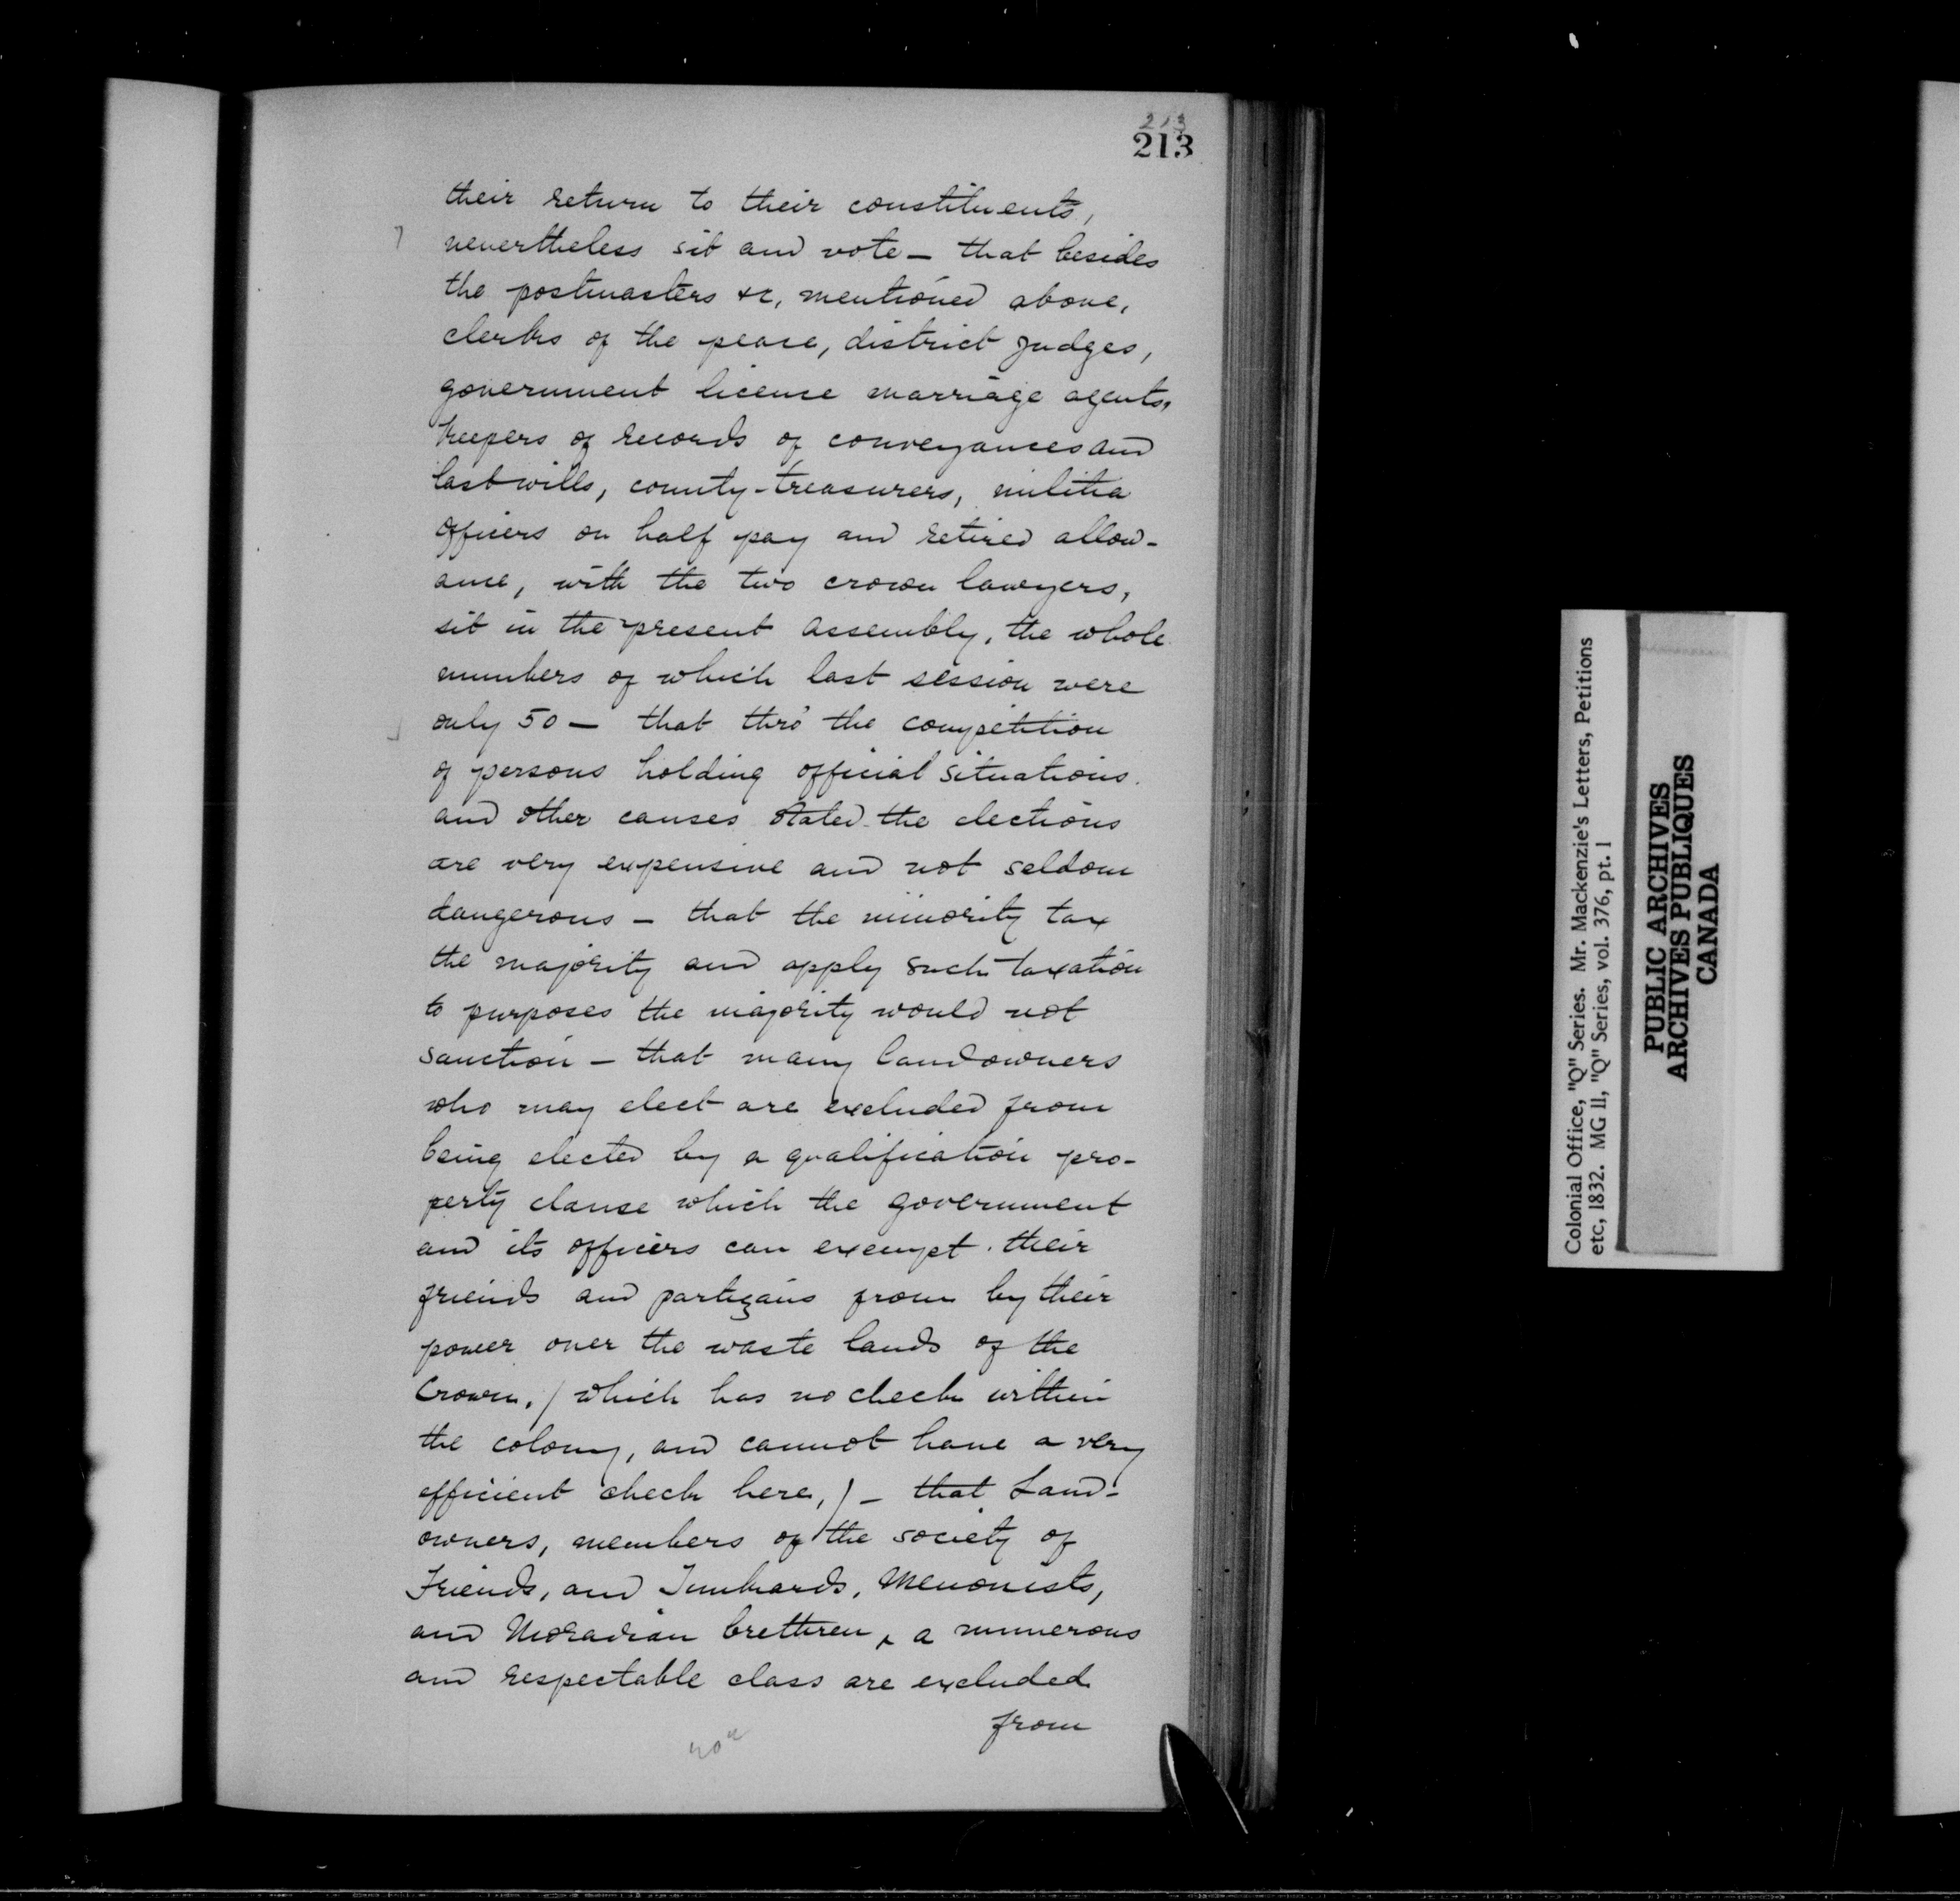 213
213
their return to their constituents,
nevertheless sit and vote — that besides
the postmasters &c, mentioned above,
clerks of the peace, district judges,
government license marriage agents,
keepers of records of conveyances and
last wills, county-treasurers, militia
officers on half pay and retired allow-
ance, with the two crown lawyers,
sit in the present assembly, the whole
numbers of which last session were
only 50 — that thro' the competition
of persons holding official situations.
and other causes stated the elections
are very expensive and not seldom
dangerous — that the minority tax
the majority and apply such taxation
to purposes the majority would not
sanction — that many landowners
who may elect are excluded from
being elected by a qualification pro-
perty clause which the government
and its officers can exempt their
friends and partizans from by their
power over the waste lands of the
Crown, (which has no check within
the colony, and cannot have a very
efficient check here,) — that Land-
owners, members of the society of
Friends, and Tunkards, Menonists,
and Moravian brethren, a numerous
and respectable class are excluded
from
Colonial Office, "Q" Series. Mr. Mackenzie's Letters, Petitions
etc, 1832. MG 11, "Q" Series, vol. 376, pt. 1
PUBLIC ARCHIVES
ARCHIVES PUBLIQUES
CANADA